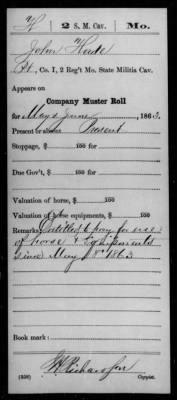 H 2 S. M. Cav. Mo.
John Herde
Pvt., Co. I, 2 Reg't Mo. State Militia Cav.
Appears on
Company Muster Roll
for May & June, 1863.
Present or absent Present
Stoppage, $ 100 for
Due Gov't, $ 100 for
Valuation of horse, $ 100
Valuation of horse equipments, $ 100
Remarks: Entitled to pay for use
of horse & Equipments
since May 8" 1863
Book mark:
(358) Copyist.